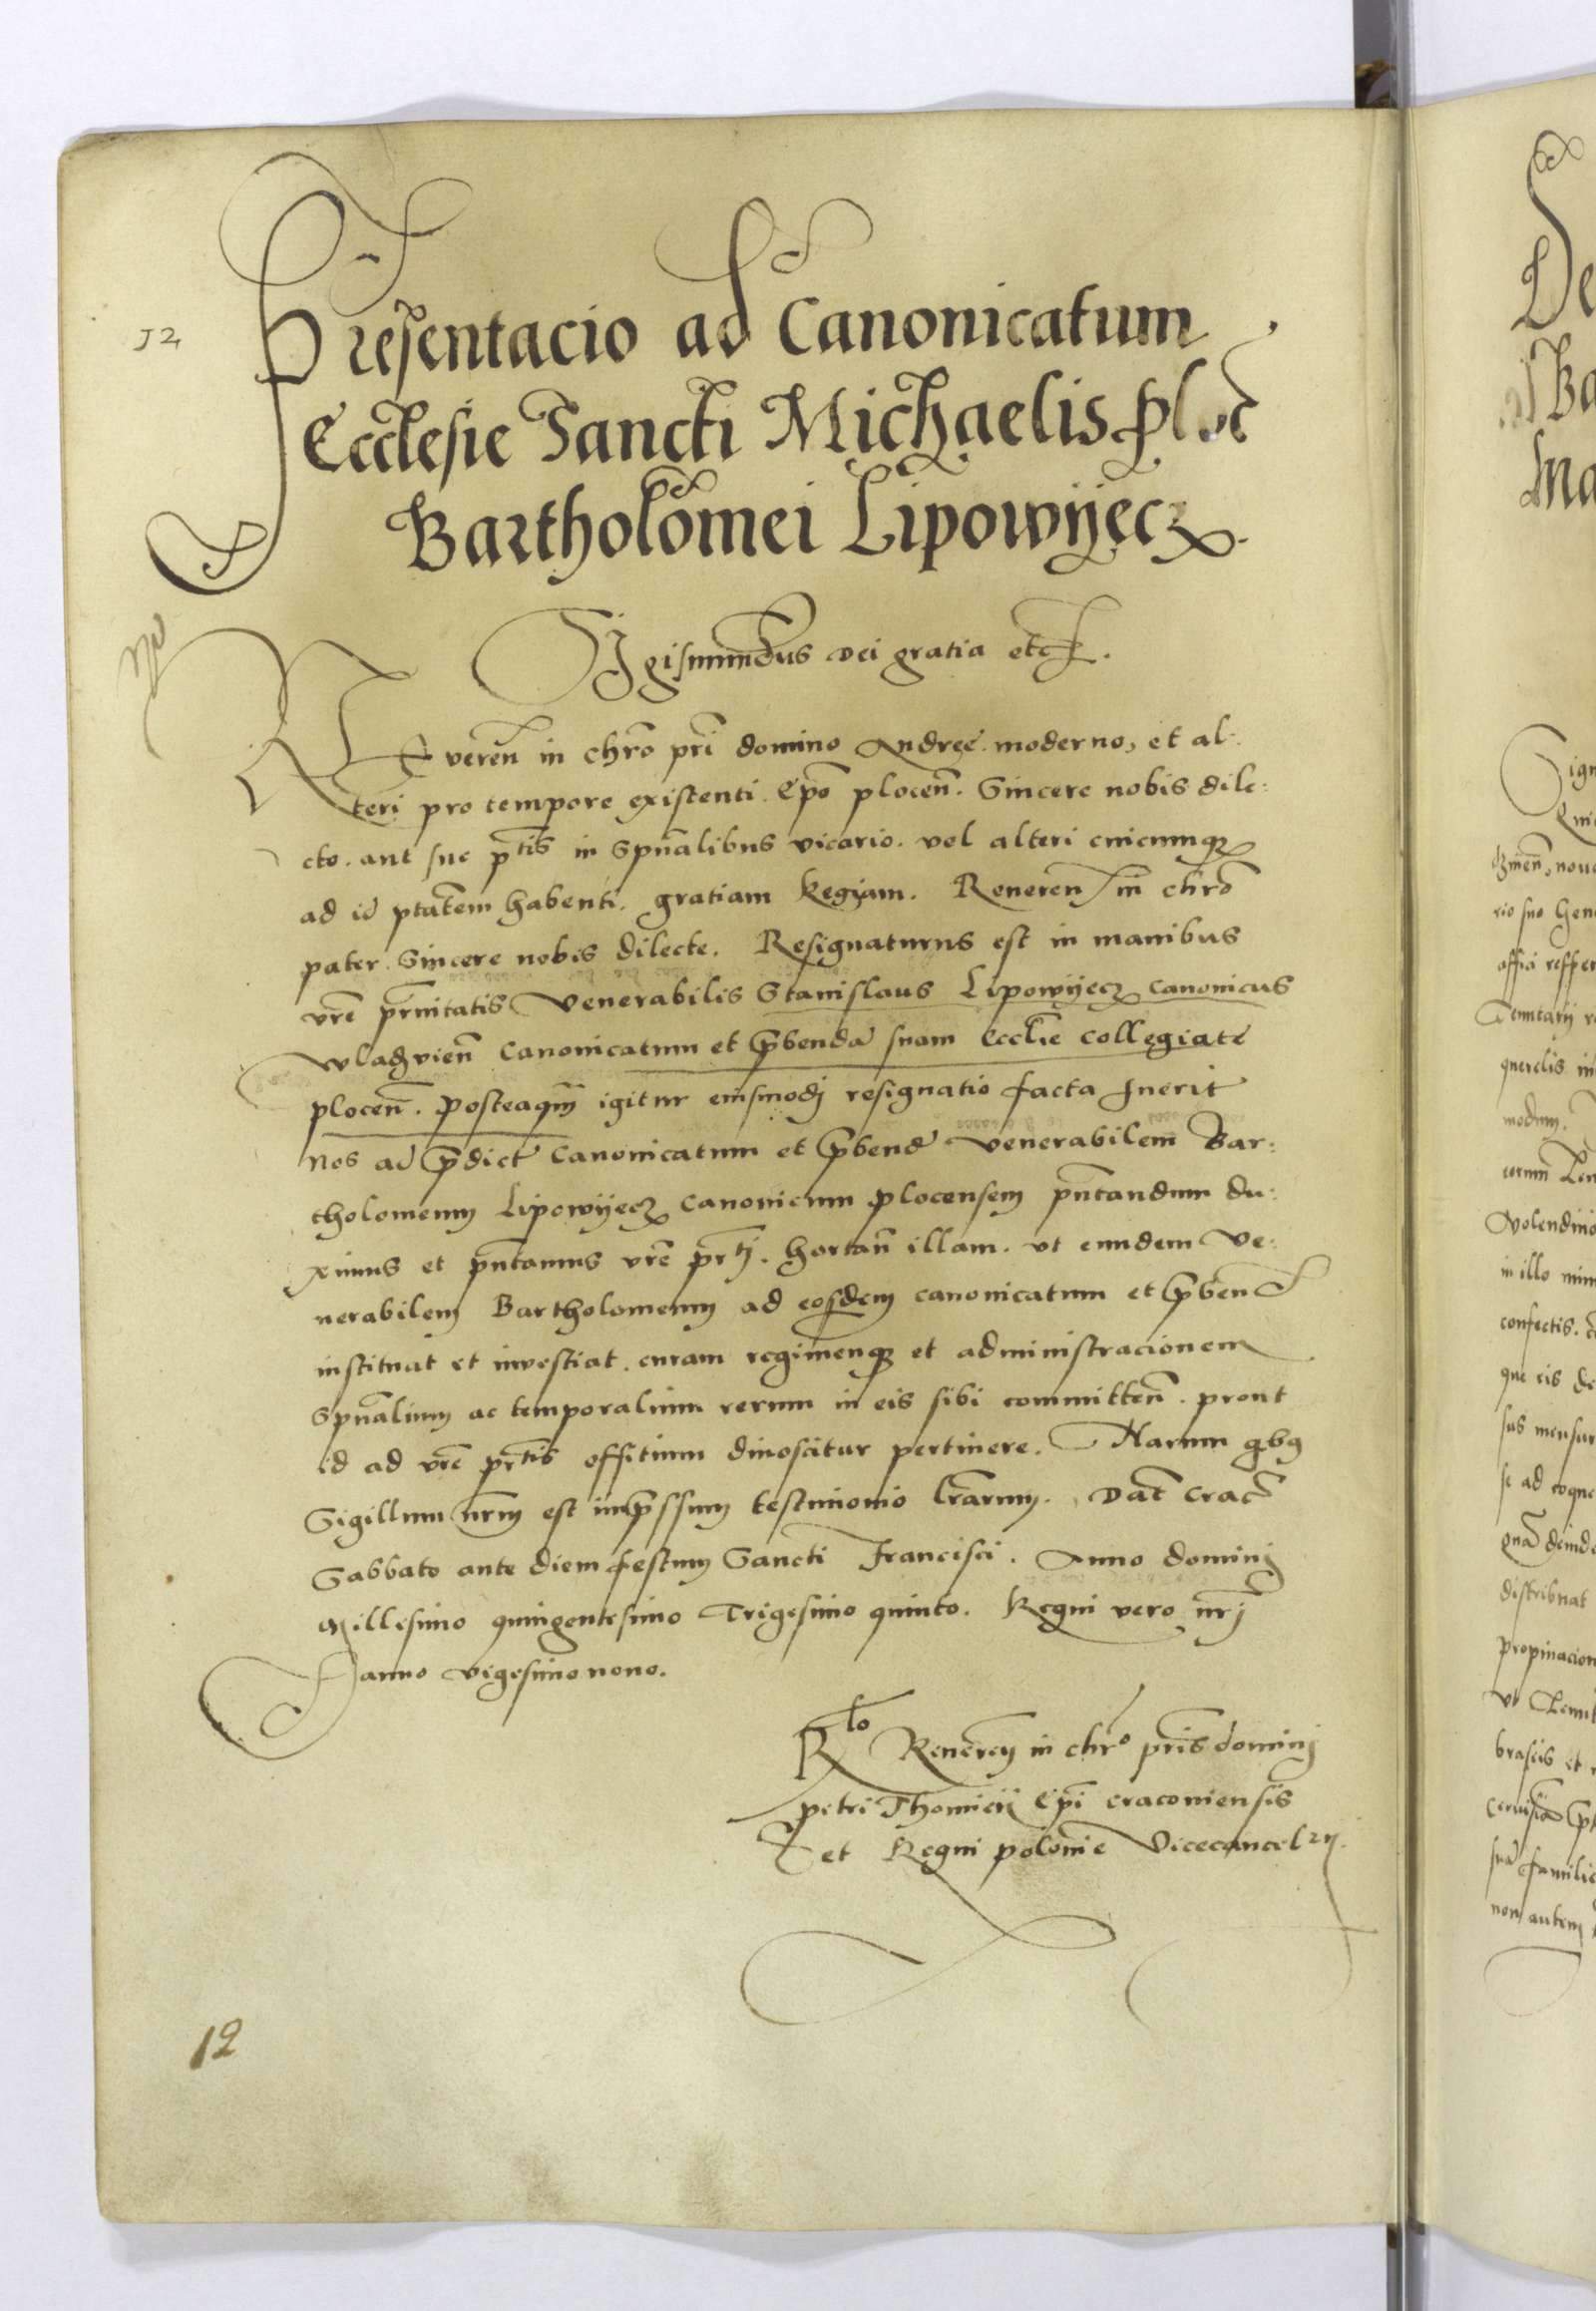 12
Presentacio ad Canonicatum
Ecclesie Sancti Michaelis ploc̃
Bartholomei Lipowyecz.
Sigismundus dei gratia etc.
Revereñ in chro pri domino Andree. moderno, et al-
teri pro tempore existenti. Epo ploceñ. Sincere nobis dile:
cto. aut sue ptis in Spualibus vicario. vel alteri cuicumq
ad id ptatem habenti. gratiam Regiam. Reueren in chro
pater. Sincere nobis dilecte. Resignaturus est in manibus
vre prnitatis Venerabilis Stanislaus Lipowyecz canonicus
wladvieñ Canonicatum et pbenda suam Ecclie collegiate
ploceñ. posteaqm igitur eiusmodj resignatio facta fuerit
nos ad pdict Canonicatum et pbend venerabilem Bar:
tholomeum Lipowyecz Canonicum plocensem pntandum du:
ximus et pntamus vre prtj. hortañ illam. vt eundem Ve:
nerabilem Bartholomeum ad eosdem canonicatum et pbend
instituat et investiat. curam regimenq et administracionem
spualium ac temporalium rerum in eis sibi committeñ. prout
id ad vre prtis offitium dinoscitur pertinere. Harum qbq
Sigillum nrm est impssum testimonio lrarum. Dat Crac
Sabbato ante diem festum Sancti Francisci. Anno dominj
Millesimo quingentesimo Trigesimo quinto. Regni vero nrj
anno vigesimo nono.
Rlo Reueren in chro pris dominj
petri Thomicij Epi cracouiensis
et Regni polonie Vicecancelrij.
12